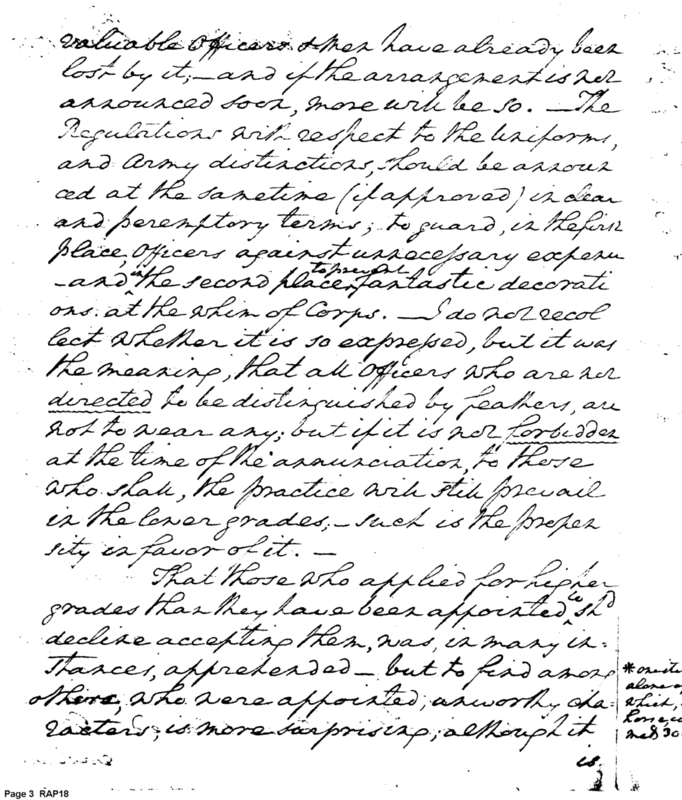 valuable Officers & Men have already been
lost by it; – and if the arrangement is not
announced soon, more will be so. – The
Regulations with respect to the Uniforms,
and Army distinctions, should be announ
ced at the sametime (if approved) in clear
and peremptory terms; to guard, in the first
place, Officers against unnecessary expence
– and in the second place, to prevent fantastic decorati
ons. at the whim of Corps. – I do not recol
lect whether it is so expressed, but it was
the meaning, that all Officers who are not
directed to be distinguished by feathers, are
not to wear any; but if it is not forbidden
at the time of the annunciation, to those
who shall, the practice will still prevail
in the lower grades; – such is the propen
sity in favor of it. –
That those who applied for higher
grades than they have been appointed to shd
decline accepting them, was, in many in-
stances, apprehended – but to find among
others, who were appointed, unworthy cha-
racters; is more surprising; although it
is
* one
alone
which,
horse,
Page 3 RAP18